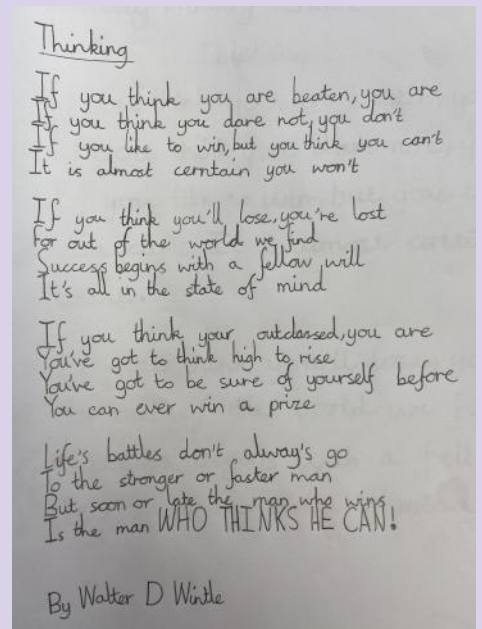 Thinking
If you think you are beaten, you are
If you think you dare not, you don't
If you like to win, but you think you can't
It is almost cerntain you won't
If you think you'll lose, you're lost
For out of the world we find
Success begins with a fellow will
It's all in the state of mind
If you think your outclassed, you are
You've got to think high to rise
You've got to be sure of yourself before
You can ever win a prize
Life's battles don't always's go
To the stronger or faster man
But, soon or late the man who wins
Is the man WHO THINKS HE CAN!
By Walter D Wintle